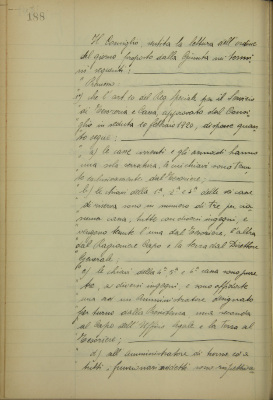 188
Il Consiglio, udita la lettura dell'ordine
del giorno proposto dalla Giunta nei termini
seguenti:
Ritenuto:
che l'art. 10 del Reg. speciale per il Servizio
di Tesoreria e Cassa, approvato dal Consi
glio in seduta 20 febbraio 1920, dispone quan
to segue:
a) le casse correnti e gli armadi hanno
una sola serratura, le cui chiavi sono tenu
te esclusivamente dal Tesoriere;
b) le chiavi della 1ª, 2ª e 3ª delle casse
di riserva sono in numero di tre per cia
scuna cassa, tutte con diversi ingegni, e
vengono tenute l'una dal Tesoriere, l'altra
dal Ragioniere Capo e la terza dal Direttore
Generale;
c) le chiavi della 4ª, 5ª e 6ª cassa sono pure
tre, a diversi ingegni, e sono affidate
una ad un Amministratore designato
per turno dalla Presidenza, una seconda
al Capo dell'Ufficio legale e la terza al
Tesoriere;
d) all'amministratore di turno ed a
tutti i funzionari addetti sono